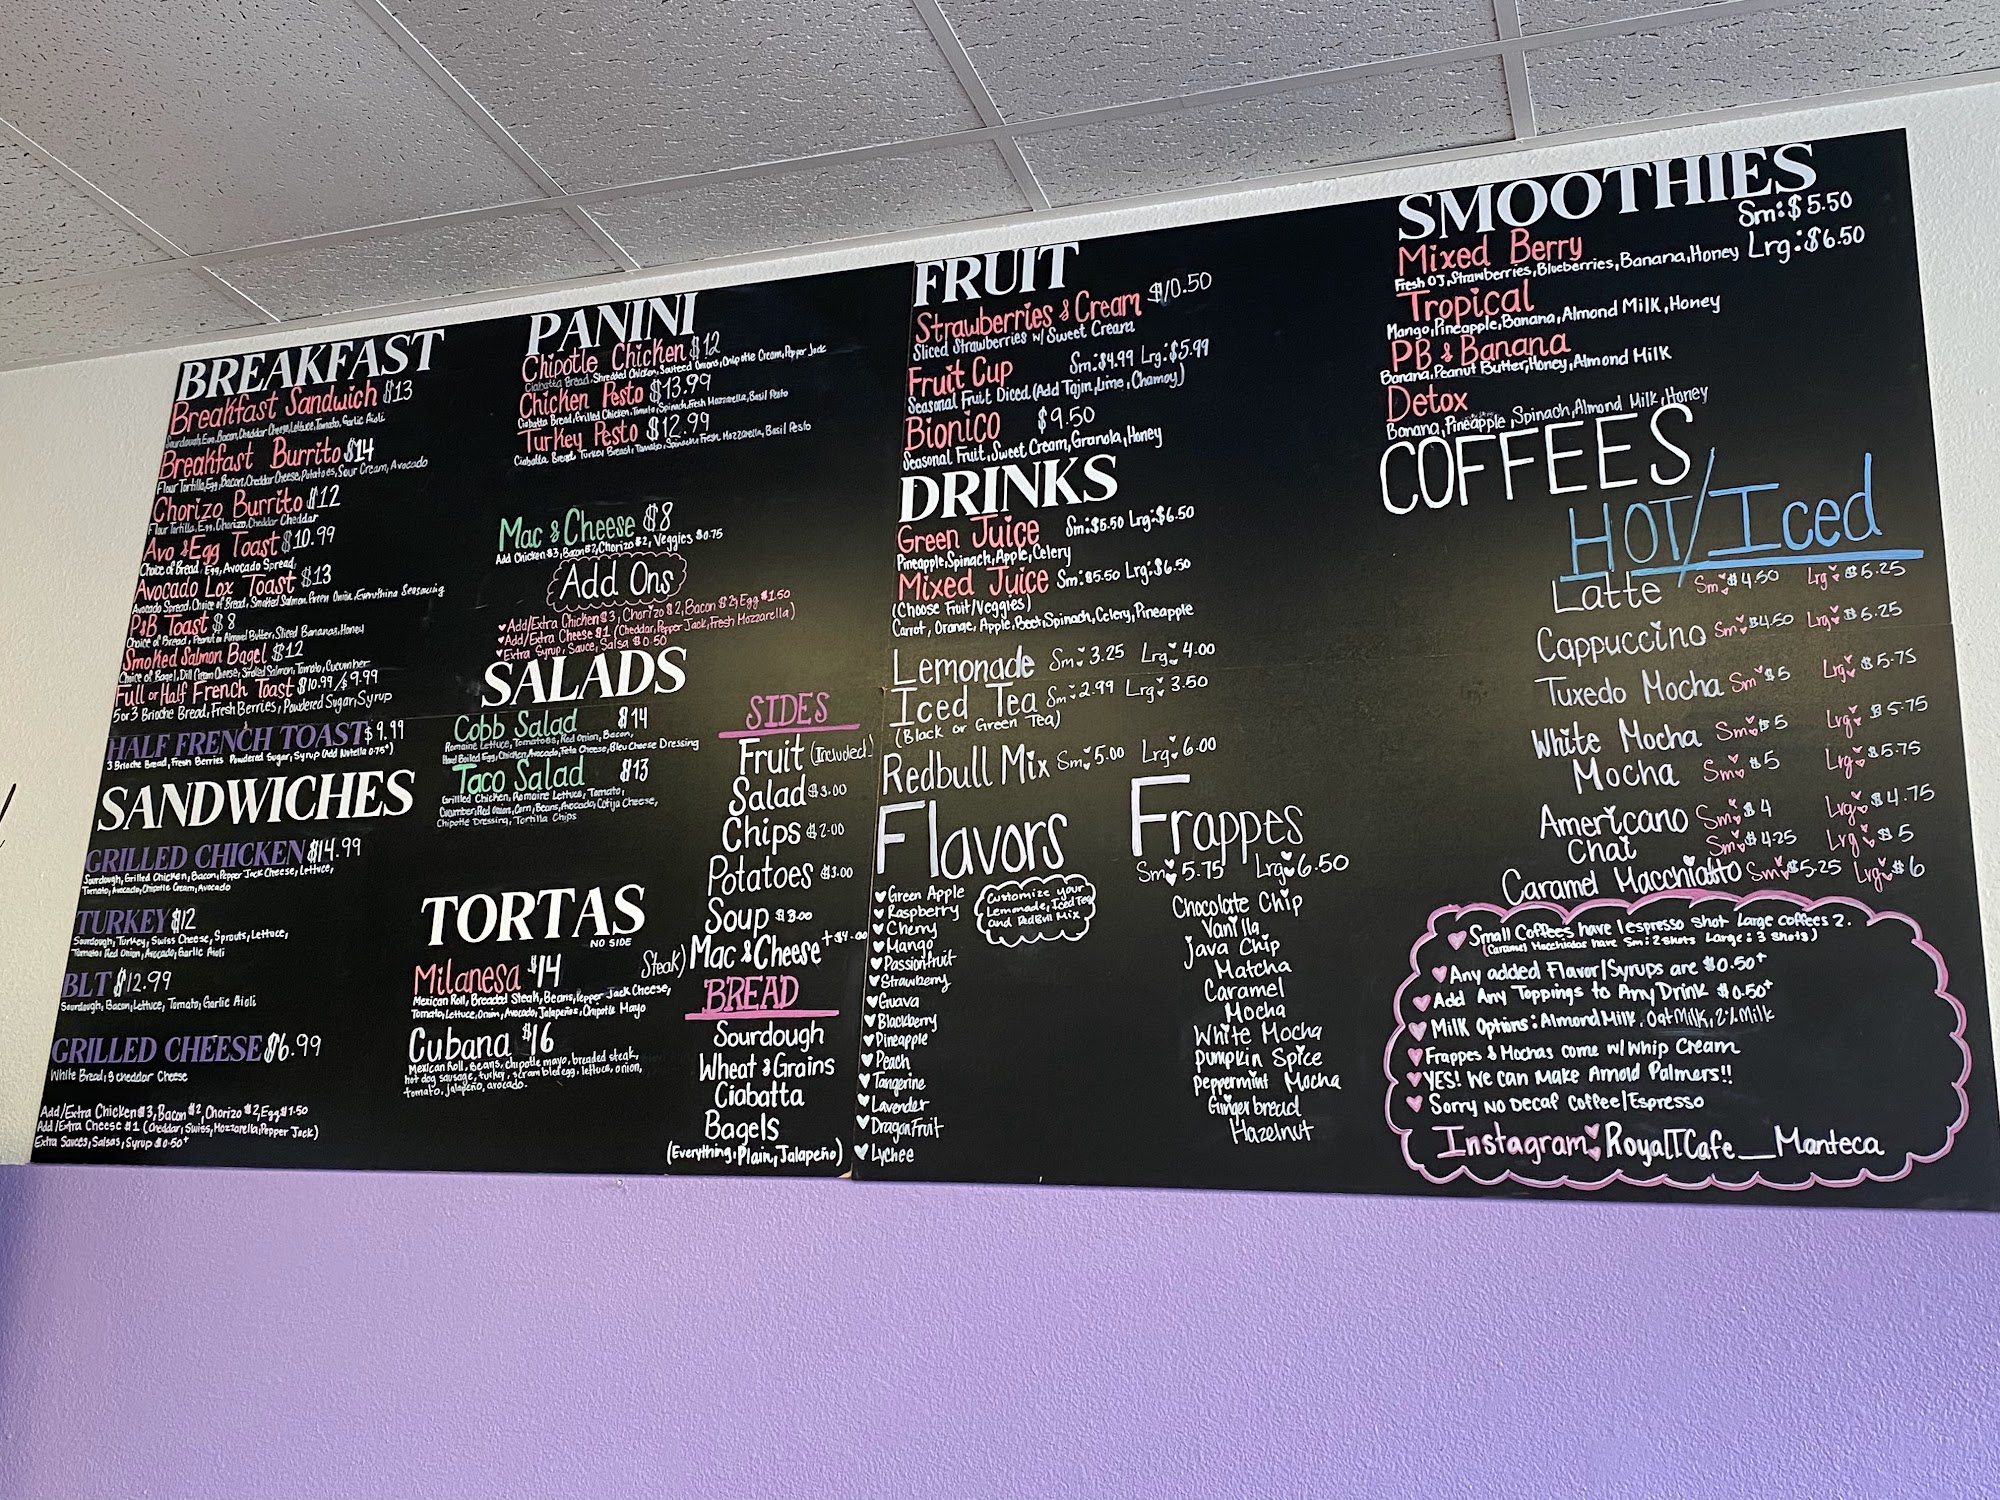 BREAKFAST
Breakfast Sandwich $13
Sourdough, Egg, Bacon, Cheddar Cheese, Lettuce, Tomato, Garlic Aioli
Breakfast Burrito $14
Flour Tortilla, Egg, Bacon, Cheddar Cheese, Potatoes, Sour Cream, Avocado
Chorizo Burrito $12
Flour Tortilla, Egg, Chorizo, Cheddar Cheddar
Avo & Egg Toast $10.99
Choice of Bread, Egg, Avocado Spread
Avocado Lox Toast $13
Avocado Spread, Choice of Bread, Smoked Salmon, Green Onion, Everything Seasoning
P&B Toast $8
Choice of Bread, Peanut or Almond Butter, Sliced Bananas, Honey
Smoked Salmon Bagel $12
Choice of Bagel, Dill Cream Cheese, Smoked Salmon, Tomato, Cucumber
Full or Half French Toast $10.99/$9.99
5 or 3 Brioche Bread, Fresh Berries, Powdered Sugar, Syrup
HALF FRENCH TOAST $9.99
3 Brioche Bread, Fresh Berries Powdered Sugar, Syrup (Add Nutella 0.75*)
SANDWICHES
GRILLED CHICKEN $14.99
Sourdough, Grilled Chicken, Bacon, Pepper Jack Cheese, Lettuce,
Tomato, Avocado, Chipotle Cream, Avocado
TURKEY $12
Sourdough, Turkey, Swiss Cheese, Sprouts, Lettuce,
Tomato, Red Onion, Avocado, Garlic Aioli
BLT $12.99
Sourdough, Bacon, Lettuce, Tomato, Garlic Aioli
GRILLED CHEESE $6.99
White Bread, 3 cheddar Cheese
Add/Extra Chicken $3, Bacon $2, Chorizo $2, Egg $1.50
Add/Extra Cheese $1 (Cheddar, Swiss, Mozzarella, Pepper Jack)
Extra Sauces, Salsas, Syrup $0.50+
PANINI
Chipotle Chicken $12
Ciabatta Bread, Shredded Chicken, Sauteed Onions, Chipotle Cream, Pepper Jack
Chicken Pesto $13.99
Ciabatta Bread, Grilled Chicken, Tomato, Spinach, Fresh Mozzarella, Basil Pesto
Turkey Pesto $12.99
Ciabatta Bread, Turkey Breast, Tomato, Spinach, Fresh Mozzarella, Basil Pesto
Mac & Cheese $8
Add Chicken $3, Bacon $2, Chorizo $2, Veggies $0.75
Add Ons
Add/Extra Chicken $3, Chorizo $2, Bacon $2, Egg $1.50
Add/Extra Cheese $1 (Cheddar, Pepper Jack, Fresh Mozzarella)
Extra Syrup, Sauce, Salsa $0.50
SALADS
Cobb Salad $14
Romaine Lettuce, Tomatoes, Red Onion, Bacon,
Hard Boiled Egg, Chicken, Avocado, Feta Cheese, Bleu Cheese Dressing
Taco Salad $13
Grilled Chicken, Romaine Lettuce, Tomato,
Cucumber, Red Onion, Corn, Beans, Avocado, Cotija Cheese,
Chipotle Dressing, Tortilla Chips
TORTAS
NO SIDE
Milanesa $14
Mexican Roll, Breaded Steak, Beans, Pepper Jack Cheese,
Tomato, Lettuce, Onion, Avocado, Jalapeños, Chipotle Mayo
Cubana $16
Mexican Roll, Beans, chipotle mayo, breaded steak,
hot dog sausage, turkey, scrambled egg, lettuce, onion,
tomato, jalapeño, avocado.
SIDES
Fruit (Included)
Salad $3.00
Chips $2.00
Potatoes $3.00
Soup $3.00
Steak) Mac & Cheese +$4.00
BREAD
Sourdough
Wheat & Grains
Ciabatta
Bagels
(Everything, Plain, Jalapeño)
FRUIT
Strawberries & Cream $10.50
Sliced Strawberries w/ Sweet Cream
Fruit Cup Sm:$4.99 Lrg:$5.99
Seasonal Fruit Diced (Add Tajin, Lime, Chamoy)
Bionico $9.50
Seasonal Fruit, Sweet Cream, Granola, Honey
DRINKS
Green Juice Sm:$5.50 Lrg:$6.50
Pineapple, Spinach, Apple, Celery
Mixed Juice Sm:$5.50 Lrg:$6.50
(Choose Fruit/Veggies)
Carrot, Orange, Apple, Beet, Spinach, Celery, Pineapple
Lemonade Sm: 3.25 Lrg: 4.00
Iced Tea Sm: 2.99 Lrg: 3.50
(Black or Green Tea)
Redbull Mix Sm: 5.00 Lrg: 6.00
Flavors
Customize your
Lemonade, Iced Tea
and RedBull Mix
Green Apple
Raspberry
Cherry
Mango
Passionfruit
Strawberry
Guava
Blackberry
Pineapple
Peach
Tangerine
Lavender
DragonFruit
Lychee
Frappes
Sm: 5.75 Lrg: 6.50
Chocolate Chip
Vanilla
Java Chip
Matcha
Caramel
Mocha
White Mocha
Pumpkin Spice
Peppermint Mocha
Gingerbread
Hazelnut
SMOOTHIES
Sm:$5.50
Lrg:$6.50
Mixed Berry
Fresh OJ, Strawberries, Blueberries, Banana, Honey
Tropical
Mango, Pineapple, Banana, Almond Milk, Honey
PB & Banana
Banana, Peanut Butter, Honey, Almond Milk
Detox
Banana, Pineapple, Spinach, Almond Milk, Honey
COFFEES
HOT/Iced
Latte Sm: $4.50 Lrg: $5.25
Cappuccino Sm: $4.50 Lrg: $5.25
Tuxedo Mocha Sm: $5 Lrg: $5.75
White Mocha Sm: $5 Lrg: $5.75
Mocha Sm: $5 Lrg: $5.75
Americano Sm: $4 Lrg: $4.75
Chai Sm: $4.25 Lrg: $5
Caramel Macchiatto Sm: $5.25 Lrg: $6
Small Coffees have 1 espresso shot Large coffees 2.
(Caramel Macchiados have Sm: 2 shots Large: 3 shots)
Any added Flavor/Syrups are $0.50+
Add Any Toppings to Any Drink $0.50+
Milk Options: Almond Milk, Oat Milk, 2% Milk
Frappes & Mochas come w/ Whip Cream
YES! We can make Arnold Palmers!!
Sorry No Decaf Coffee/Espresso
Instagram: RoyalTCafe_Manteca